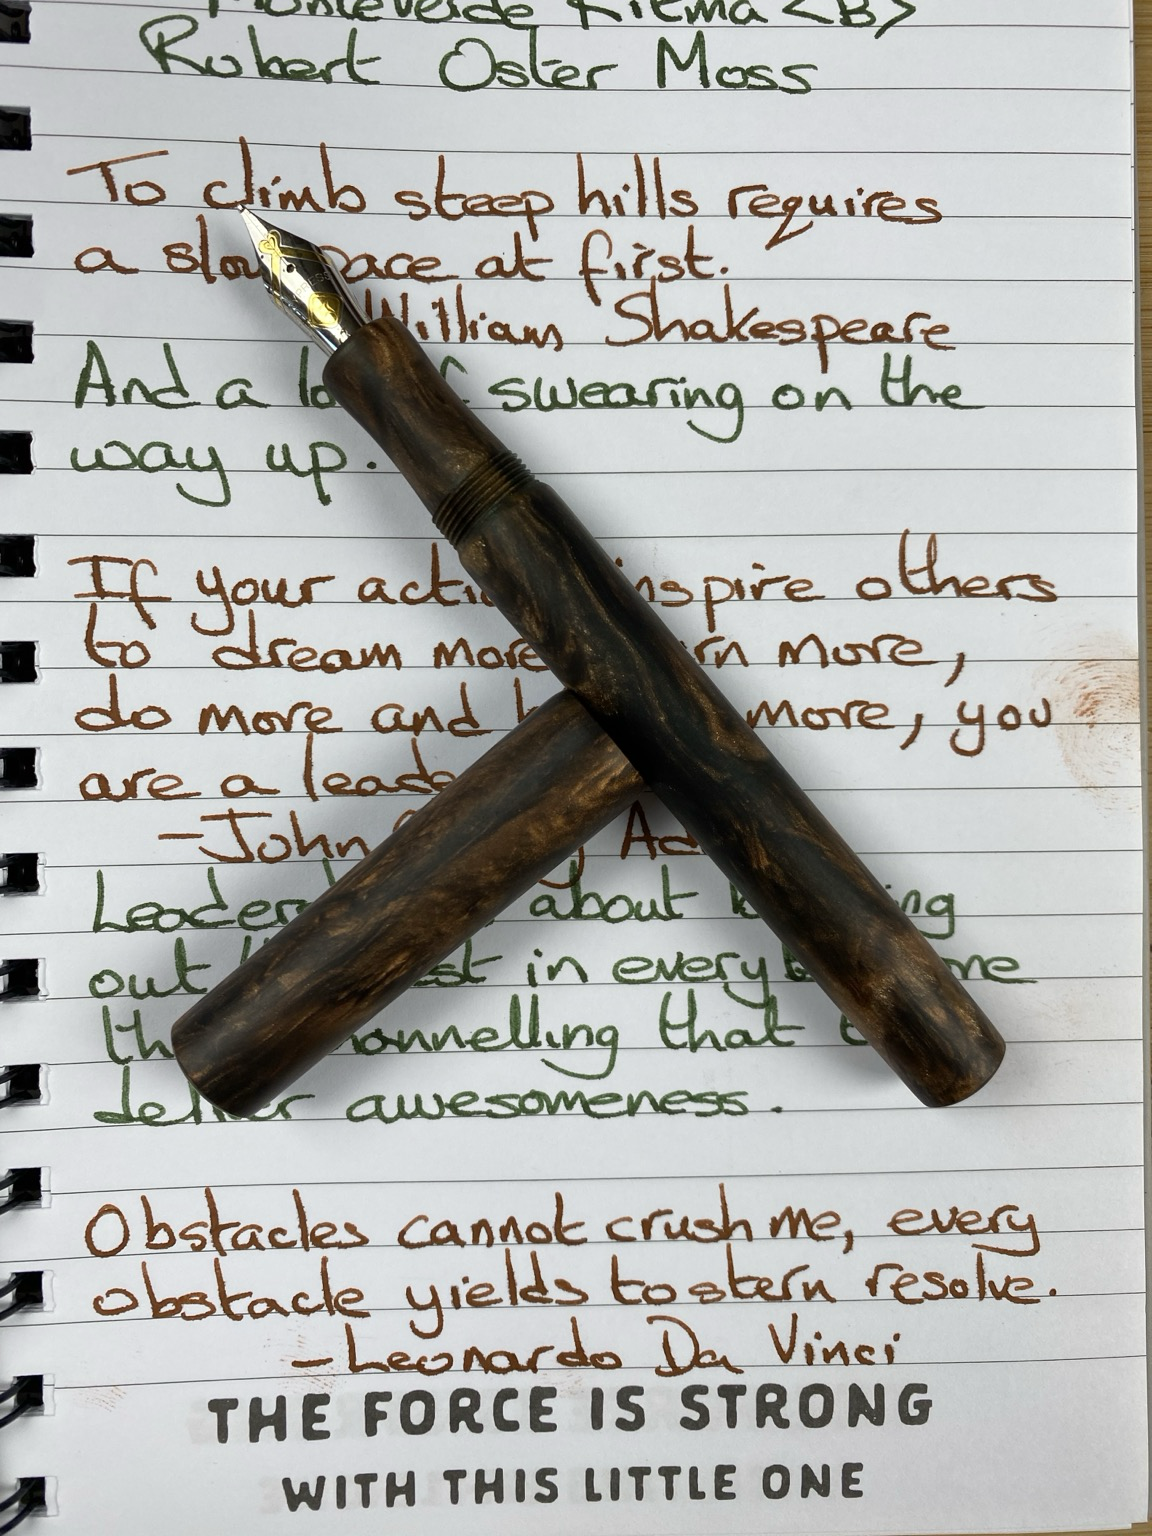 Monteverde Ritma <B>
Robert Oster Moss
To climb steep hills requires
a slow pace at first.
William Shakespeare
And a lot of swearing on the
way up.
If your actions inspire others
to dream more, learn more,
do more and become more, you
are a leader
-John Quincy Adams
Leadership about
out in everyone
channelling that
deliver awesomeness.
Obstacles cannot crush me, every
obstacle yields to stern resolve.
- Leonardo Da Vinci
THE FORCE IS STRONG
WITH THIS LITTLE ONE